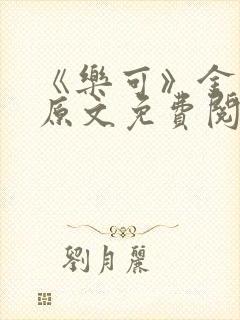 《樂可》全
原文免費閱
劉月麗